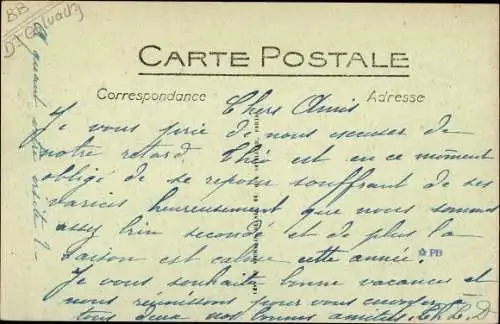 BB
D. Calvados
CARTE POSTALE
Correspondance
Adresse
Chers Amis
Je vous prie de nous excuser de
notre retard Théo est en ce moment
obligé de se reposer souffrant de ses
varices heureusement que nous sommes
assez bien secondé et de plus la
saison est calme cette année.
PB
Je vous souhaite bonne vacances et
nous réunissons pour vous envoyer à
tous deux nos bonnes amitiés, Th. L. D
A quand votre visite ?